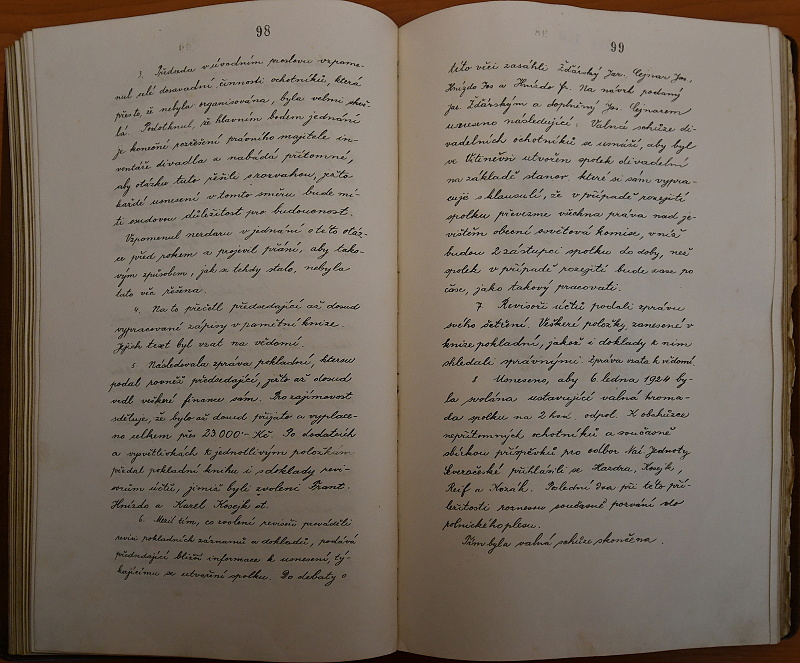 98
3. Předseda v úvodním proslovu vzpome-
nul celé dosavadní činnosti ochotníků, která
přesto, že nebyla organisována, byla velmi
Podotknul, že hlavním bodem jednání
je konečné rozřešení právního majitele in-
ventáře divadla a nabádá přítomné,
aby otázku tuto řešili s rozvahou, ježto
každé usnesení v tomto směru bude mí-
ti osudovou důležitost pro budoucnost.
Vzpomenul nezdaru v jednání o této otáz-
ce před rokem a projevil přání, aby tako-
vým způsobem, jak se tehdy stalo, nebyla
tato věc řešena.
4. Na to přečetl předsedající až dosud
vypracované zápisy v pamětní knize.
Jejich text byl vzat na vědomí.
5 Následovala zpráva pokladní, kterou
podal rovněž předsedající, ježto až dosud
vedl veškeré finance sám. Pro zajímavost
sděluje, že bylo až dosud přijato a vyplace-
no celkem přes 23.000·- Kč. Po dodatcích
a vysvětlivkách k jednotlivým položkám
předal pokladní knihu i s doklady revi-
sorům účtů, jimiž byli zvoleni Frant.
Hnízdo a Karel Kosejk st.
6. Mezi tím, co zvolení revisoři prováděli
revisi pokladních záznamů a dokladů, podává
předsedající bližší informace k usnesení, tý-
kajícímu se utvoření spolku. Do debaty o
99
této věci zasáhli Žďárský Jar. Cejnar Jos,
Hnízdo Jos a Hnízdo Fr. Na návrh podaný
Jar. Žďárským a doplněný Jos. Cejnarem
usneseno následující: Valná schůze di-
vadelních ochotníků se usnáší, aby byl
ve Vtíněvsi utvořen spolek divadelní
na základě stanov, které si sám vypra-
cuje s klausulí, že v případě rozejití
spolku převezme všechna práva nad je-
věštěm obecní osvětová komise, v níž
budou 2 zástupci spolku do doby, než
spolek v případě rozejití bude zase po
čase, jako takový pracovati.
7. Revisoři účtů podali zprávu
svého šetření. Veškeré položky, zanesené v
knize pokladní, jakož i doklady k nim
shledali správnými. Zpráva vzata k vědomí.
8 Usneseno, aby 6. ledna 1924 by-
la svolána ustavující valná hroma-
da spolku na 2 hod. odpol. K obchůzce
nepřítomných ochotníků a současně
sbírkou příspěvků pro odbor Nár. Jednoty
Severočeské přihlásili se Hazdra, Kosejk,
Reif a Kozák. Poslední dva při této pří-
ležitosti roznesou současně pozvání do
rolnického plesu.
Tím byla valná schůze skončena.